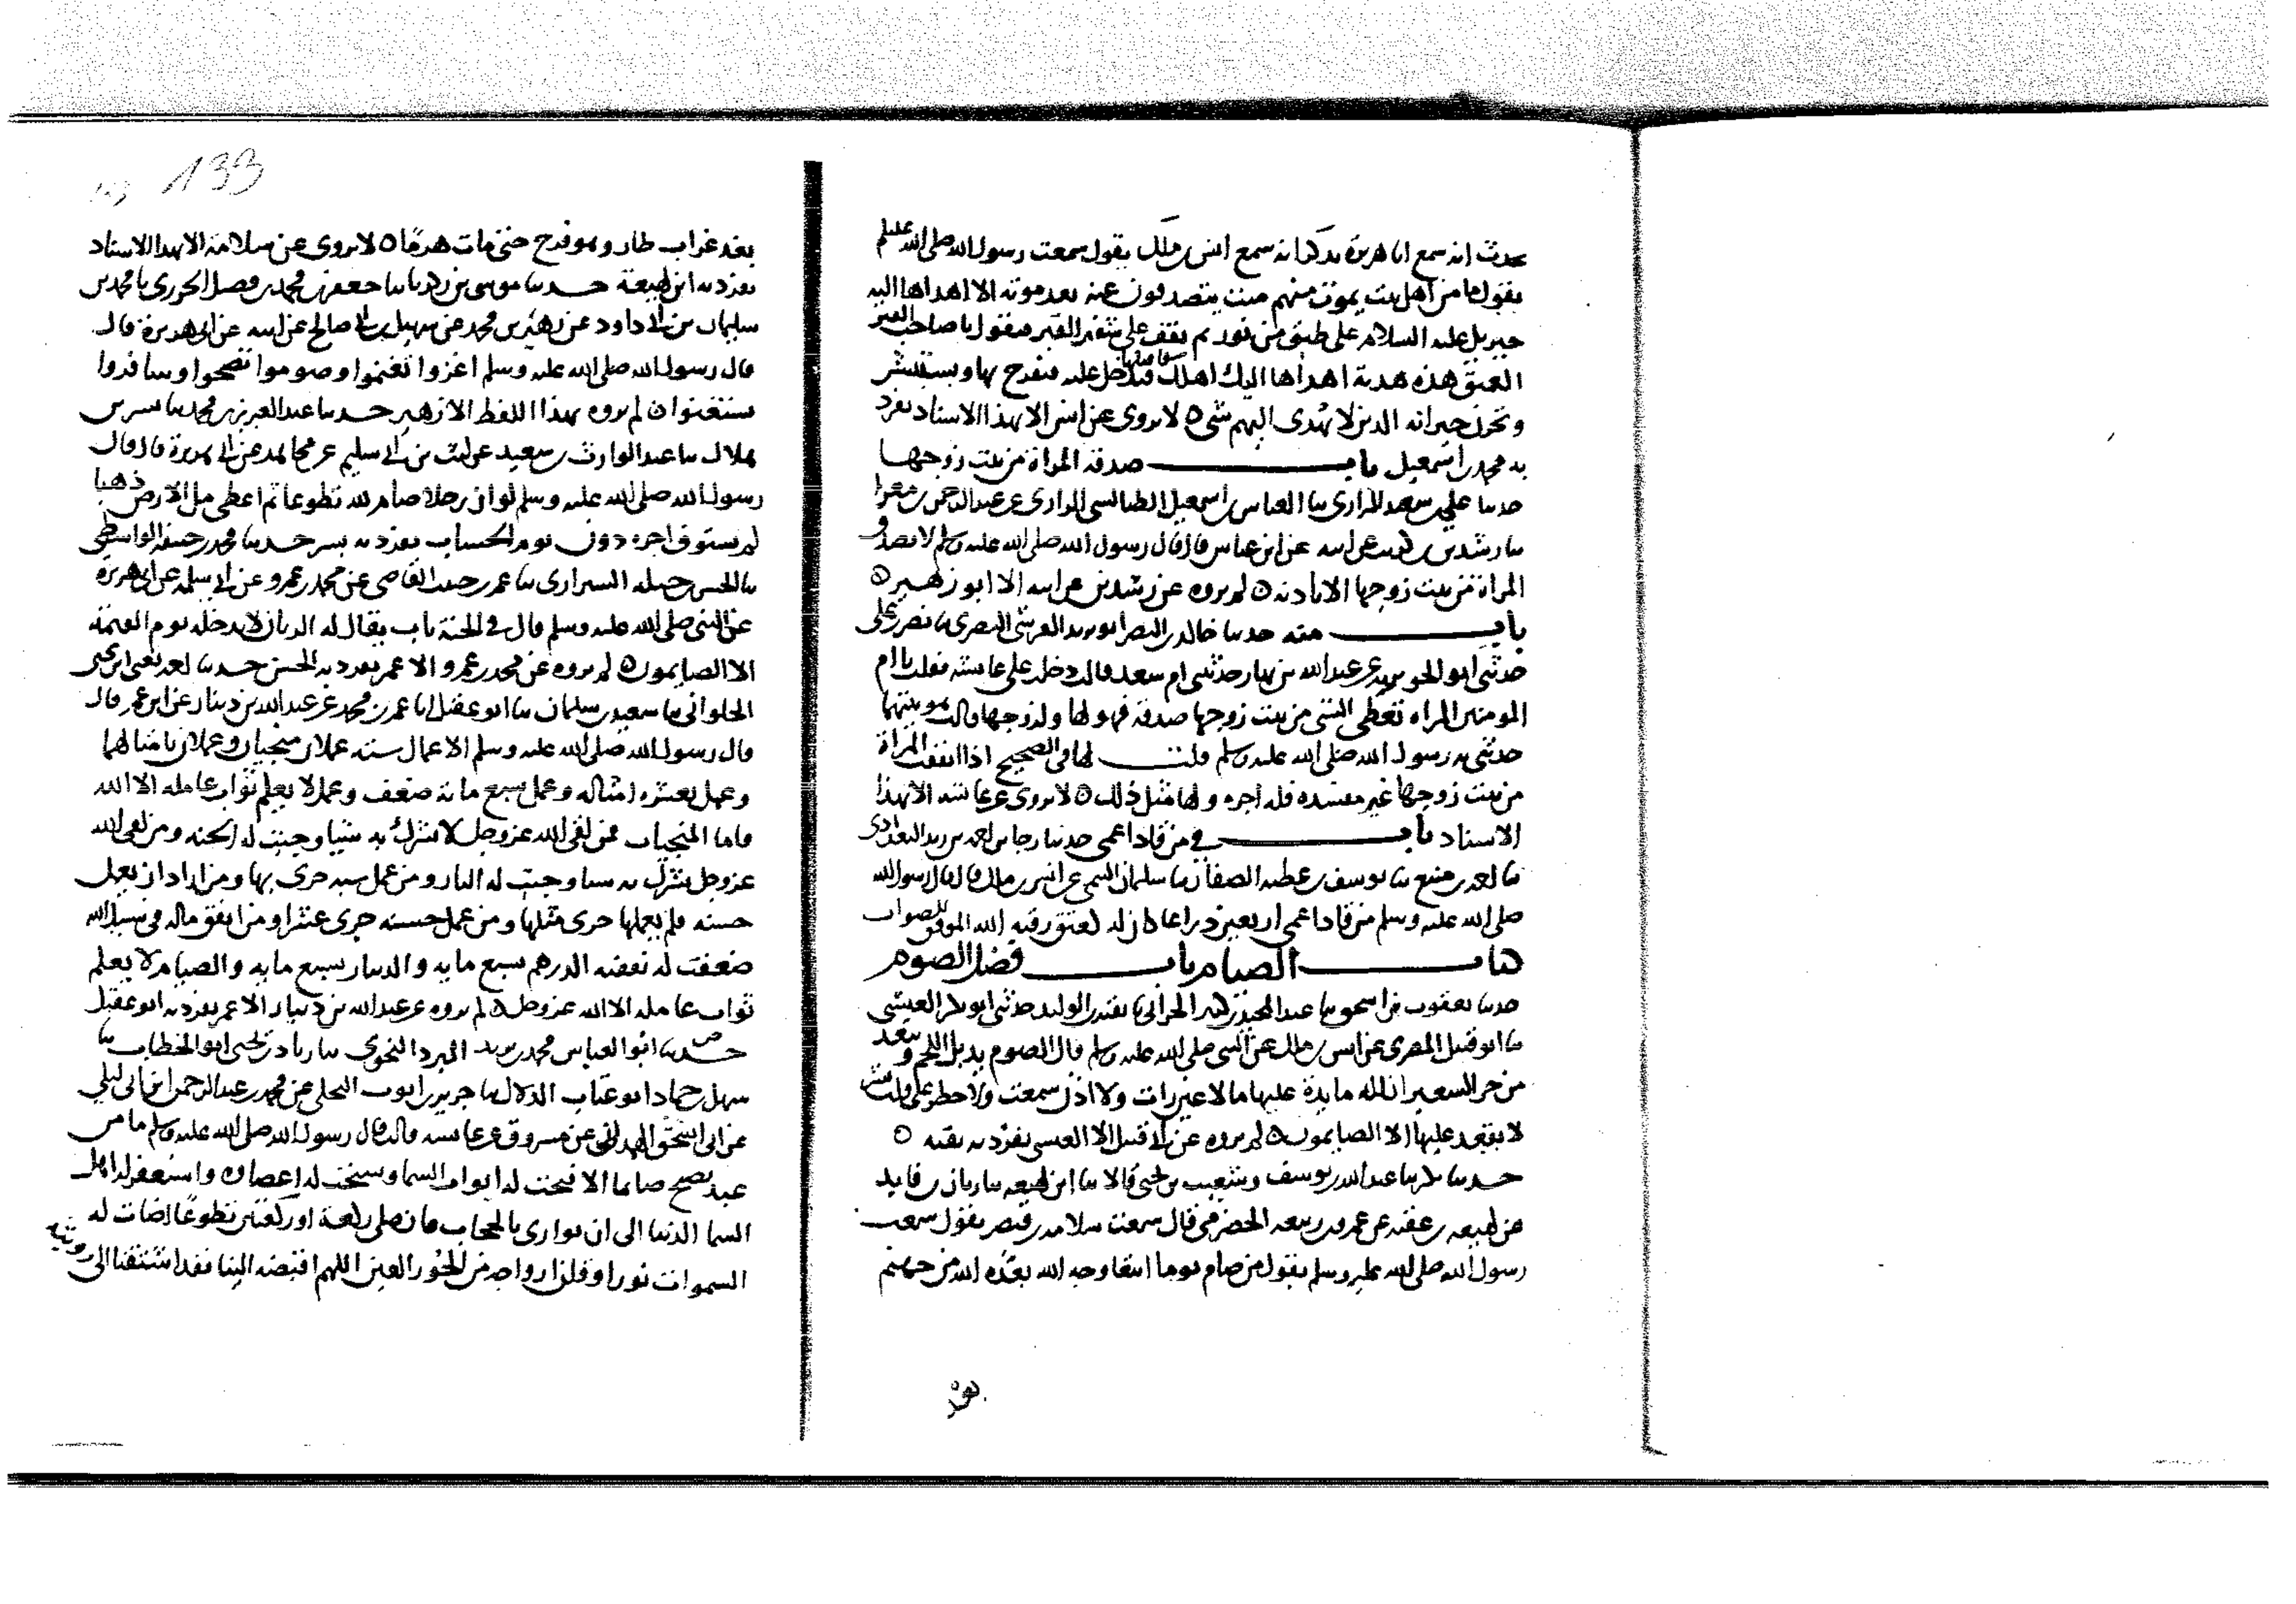 يحدث انه سمع ابا هريرة يذكر انه سمع انس بن ملك يقول سمعت رسول الله صلى الله عليه وسلم
يقول ما من اهل بيت يموت منهم ميت يتصدقون عنه بعد موته الا اهداها اليه
جبريل عليه السلام على طبق من نور ثم يقف على شفير القبر فيقول يا صاحب القبر
العميق هذه هدية اهداها اليك اهلك فاقبلها فيدخل عليه فيفرح بها ويستبشر
وتحزن جيرانه الذين لا يهدى اليهم شي ٥ لا يروى عن انس الا بهذا الاسناد تفرد
به محمد بن اسمعيل باب صدقة المراة من بيت زوجها
حدثنا علي بن سعيد الرازي ثنا العباس بن اسمعيل الطيالسي الرازي عن عبد الرحمن بن مغرا
ثنا رشدين بن كريب عن ابيه عن ابن عباس قال قال رسول الله صلى الله عليه وسلم لا تصدق
المراة من بيت زوجها الا باذنه ٥ لم يروه عن رشدين عن ابيه الا ابو زهير ٥
باب منه حدثنا خالد بن النضر ابو يزيد القرشي البصري ثنا نصر بن علي
حدثتني ام سعد قالت دخلت على عايشة فقلت يا ام
المومنين المراه تعطى الشي من بيت زوجها صدقة فهو لها ولزوجها قالت هو بينهما
حدثني به رسول الله صلى الله عليه وسلم قلت لها في الصحيح اذا انفقت المراة
من بيت زوجها غير مفسدة فله اجره ولها مثل ذلك ٥ لا يروى عن عايشه الا بهذا
الاسناد باب في من قاد اعمى حدثنا
ثنا احمد بن منيع ثنا يوسف بن عطيه الصفار ثنا سلمان التيمي عن انس بن مالك قال قال رسول الله
صلى الله عليه وسلم من قاد اعمى اربعين ذراعا كان له كعتق رقبه الله الموفق للصواب
كتاب الصيام باب فضل الصوم
حدثنا يعقوب بن اسحق ثنا بقية بن الوليد حدثني ابو بكر العبسي
ثنا ابو قبيل المصري عن انس بن ملك عن النبي صلى الله عليه وسلم قال الصوم يذبل اللحم ويبعد
من حر السعير ان لله مايدة عليها ما لا عين رات ولا اذن سمعت ولا خطر على قلب بشر
لا يقعد عليها الا الصايمون ٥ لم يروه عن ابي قبيل الا العبسي تفرد به بقيه ٥
حدثنا بكر ثنا عبد الله بن يوسف وشعيب بن يحيى قالا ثنا ابن لهيعه ثنا زبان بن فايد
عن لهيعه بن عقبه عن عمرو بن ربيعه الحضرمي قال سمعت سلامه بن قيصر يقول سمعت
رسول الله صلى الله عليه وسلم يقول من صام يوما ابتغا وجه الله بعده الله من جهنم
بعد
133
بعد غراب طار وهو فرخ حتى مات هرما ٥ لا يروى عن سلامة الا بهذا الاسناد
تفرد به ابن لهيعة حدثنا موسى بن زكريا ثنا جعفر بن محمد بن فضيل الجزري ثنا محمد بن
سليمان بن ابي داود عن زهير بن محمد عن سهيل بن ابي صالح عن ابيه عن ابي هريرة قال
قال رسول الله صلى الله عليه وسلم اغزوا تغنموا وصوموا تصحوا وسافروا
تستغنوا ٥ لم يروه بهذا اللفظ الا زهير حدثنا عبد العزيز بن محمد ثنا بسر بن
هلال ثنا عبد الوارث بن سعيد عن ليث بن ابي سليم عن مجاهد عن ابي هريرة قال قال
رسول الله صلى الله عليه وسلم لو ان رجلا صام لله تطوعا ثم اعطي مل الارض ذهبا
لم يستوف اجره دون يوم الحساب تفرد به بسر حدثنا محمد بن حنيفه الواسطي
ثنا الحسن بن جبله الشيرازي ثنا عمر بن القاضي عن محمد بن عمرو عن ابي سلمه عن ابي هريرة
عن النبي صلى الله عليه وسلم قال في الجنة باب يقال له الريان لا يدخله يوم القيمة
الا الصايمون ٥ لم يروه عن محمد بن عمرو الا عمر تفرد به الحسن حدثنا احمد بن يحيى
الحلواني ثنا سعيد بن سلمان ثنا ابو عقيل ثنا عمر بن محمد عن عبد الله بن دينار عن ابن عمر قال
قال رسول الله صلى الله عليه وسلم الاعمال ستة عملان منجيان وعملان بامثالهما
وعمل بعشرة امثاله وعمل بسبع ماية ضعف وعمل لا يعلم ثواب عامله الا الله
فاما المنجيان فمن لقي الله عز وجل لا يشرك به شيا وجبت له الجنه ومن لقي الله
عز وجل يشرك به شيا وجبت له النار ومن عمل سيه جزى بها ومن اراد ان يعمل
حسنه فلم يعملها جزى مثلها ومن عمل حسنه جزى عشرا ومن انفق ماله في سبيل الله
ضعفت له نفقته الدرهم بسبع مايه والدينار بسبع مايه والصيام لا يعلم
ثواب عامله الا الله عز وجل ٥ لم يروه عن عبد الله بن دينار الا عمر تفرد به ابو عقيل
حدثنا ابو العباس محمد بن يزيد المبرد النحوي ثنا زياد بن يحيى ابو الخطاب ثنا
سهل بن حماد ابو عتاب الدلال ثنا جرير بن ايوب البجلي عن محمد بن عبد الرحمن ابن ابي ليلي
عن ابي اسحق الهمداني عن مسروق عن عايشه قالت قال رسول الله صلى الله عليه وسلم ما من
عبد يصبح صايما الا فتحت له ابواب السما وسبحت له اعضاوه واستغفر له اهل
السما الدنيا الى ان توارى بالحجاب فان صلى ركعة او ركعتين تطوعا اضات له
السموات نورا وقلن ازواجه من الحور العين اللهم اقبضه الينا فقد اشتقنا الى رويته